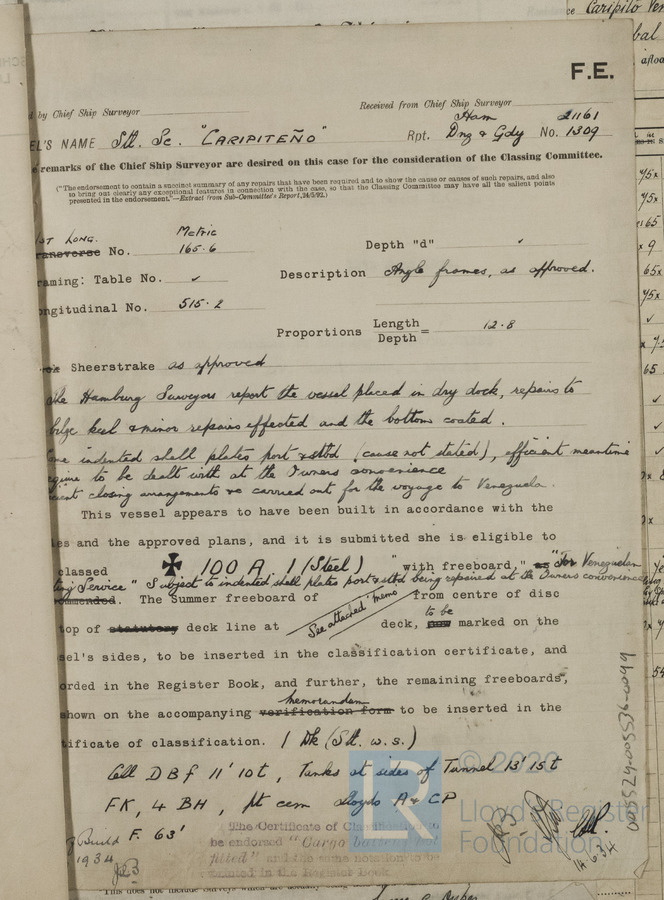 Caripito
F.E.
d by Chief Ship Surveyor
Received from Chief Ship Surveyor
Ham 21161
EL'S NAME Stl. Sc. "CARIPITEÑO" Rpt. Dnz & Gdy No. 1309
remarks of the Chief Ship Surveyor are desired on this case for the consideration of the Classing Committee.
("The endorsement to contain a succinct summary of any repairs that have been required and to show the cause or causes of such repairs, and also
so bring out clearly any exceptional features in connection with the case, so that the Classing Committee may have all the salient points
presented in the endorsement."—Extract from Sub-Committee's Report, 24/5/92.)
LONG. Metric
ansverse No. 165.6 Depth "d" ✓
raming: Table No. ✓ Description Angle frames, as approved.
ngitudinal No. 515.2
Proportions Length/Depth = 12.8
Sheerstrake as approved
The Hamburg Surveyors report the vessel placed in dry dock, repairs to
bilge keel & minor repairs effected and the bottom coated.
indented shell plates port & stbd (cause not stated), efficient meantime
to be dealt with at the Owners convenience
closing arrangements re carried out for the voyage to Venezuela.
This vessel appears to have been built in accordance with the
es and the approved plans, and it is submitted she is eligible to
classed ✠ 100 A 1 (Steel) "with freeboard," "For Venezuelan
Service" Subject to indented shell plates port & stbd being repaired at the Owners convenience
ommended. The Summer freeboard of See attached memo from centre of disc
top of statutory deck line at deck, to be marked on the
sel's sides, to be inserted in the classification certificate, and
orded in the Register Book, and further, the remaining freeboards,
memorandum
shown on the accompanying verification form to be inserted in the
tificate of classification. 1 Dk (Stl. w.s.)
Cell D B f 11' 10t, Tanks at sides of Tunnel 13' 15t
FK, 4 BH, pt cem Lloyds A & CP
Build F. 63'
1934
The Certificate of Classification to
be endorsed "Cargo battens not
fitted" and the same notation to be
inserted in the Register Book
14.6.34
005524-005536-0099
© 2020
Lloyd's Register
Foundation
This does not include surveys which are